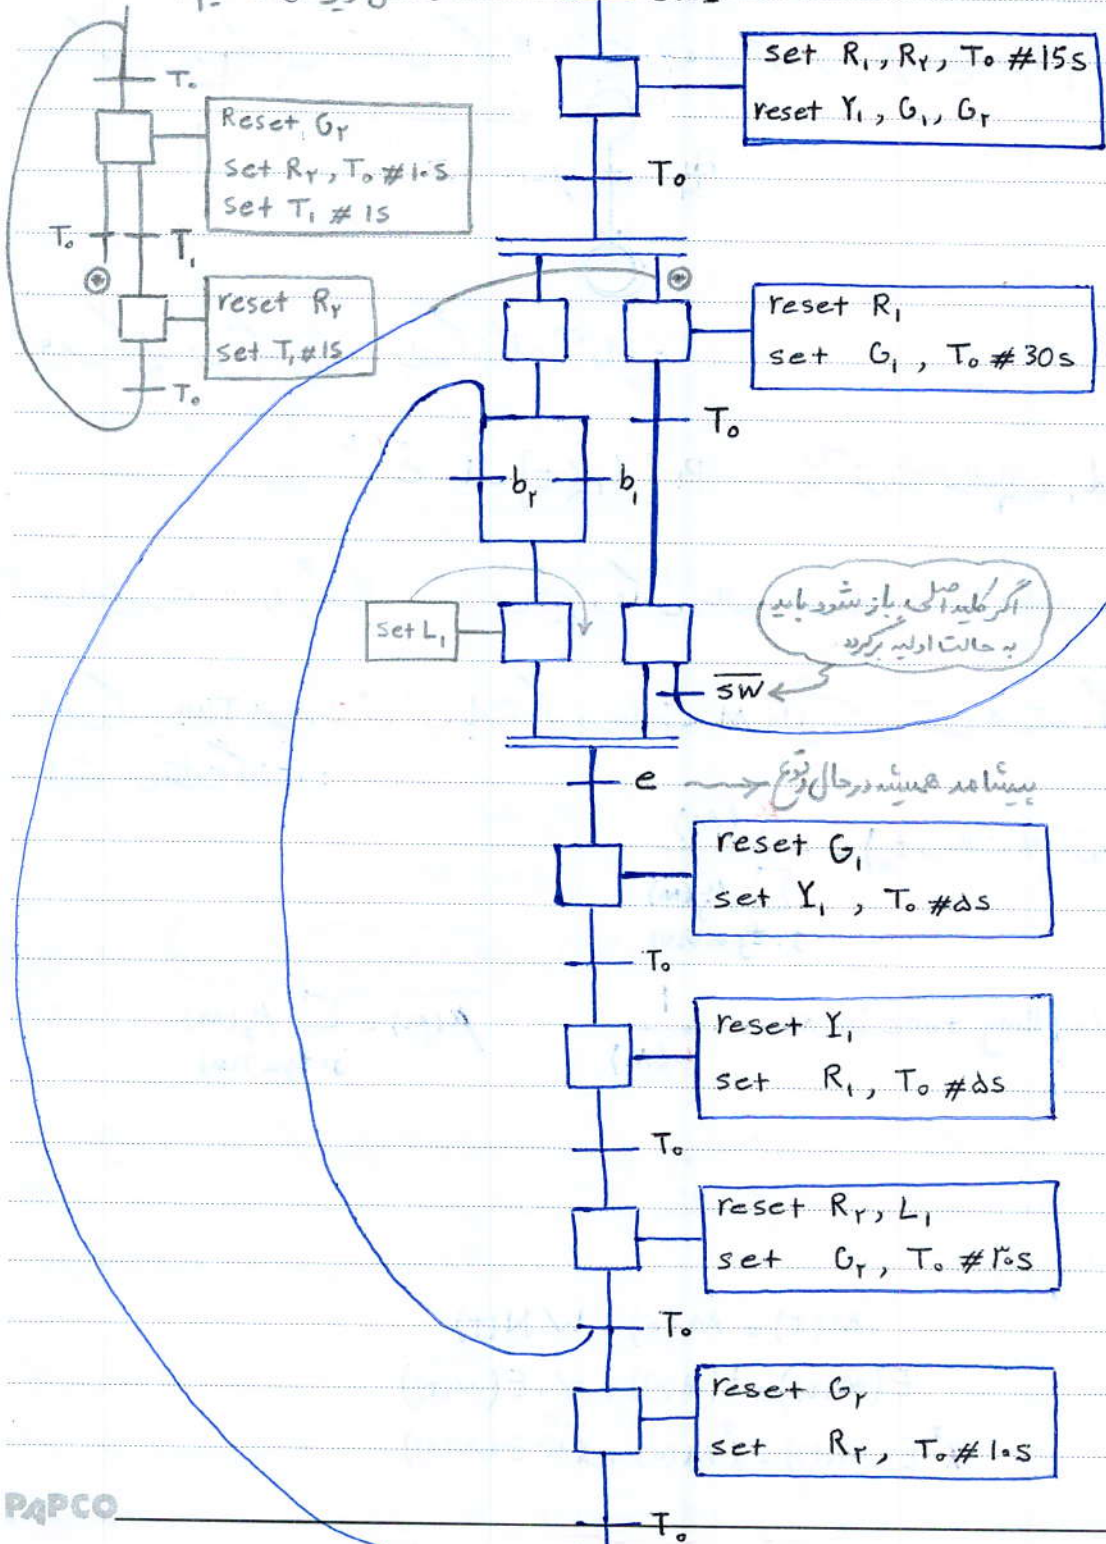 set R₁, R₂, T₀ #15s
reset Y₁, G₁, G₂
T₀
T₀
Reset G₂
set R₂, T₀ #۱۰s
set T₁ # 1s
T₀
T₁
reset R₂
set T₁ #1s
T₀
reset R₁
set G₁, T₀ #30s
T₀
b₂
b₁
set L₁
اگر کلید اصلی باز شود باید
به حالت اولیه برگردد
s̅w̅
e
پیشامد همیشه در حال وقوع
reset G₁
set Y₁, T₀ #۵s
T₀
reset Y₁
set R₁, T₀ #۵s
T₀
reset R₂, L₁
set G₂, T₀ #۲۰s
T₀
reset G₂
set R₂, T₀ #۱۰s
T₀
PAPCO